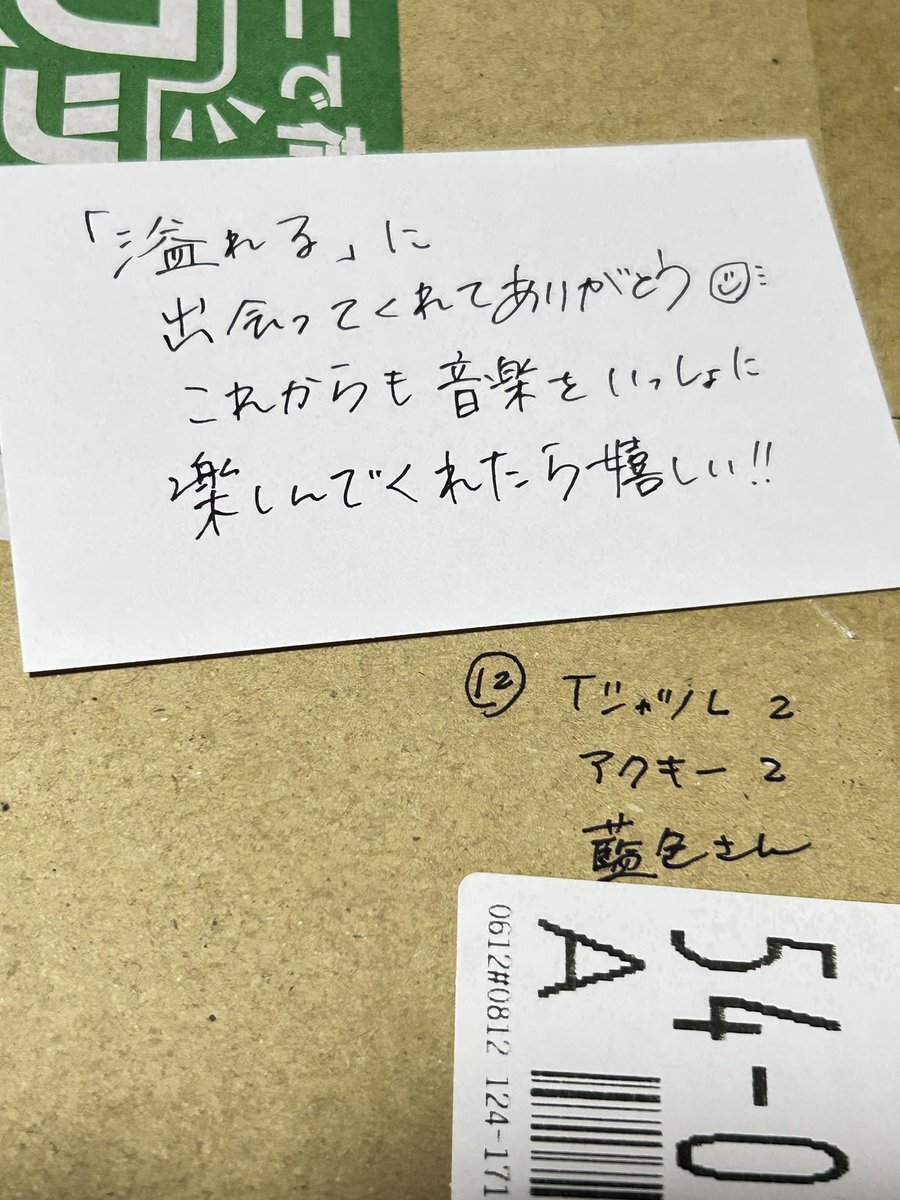 「溢れる」に
出会ってくれてありがとう
これからも音楽をいっしょに
楽しんでくれたら嬉しい!!
⑫ Tシャツ L 2
アクキー 2
藍色さん
54-0
A
0612#0812 124-171